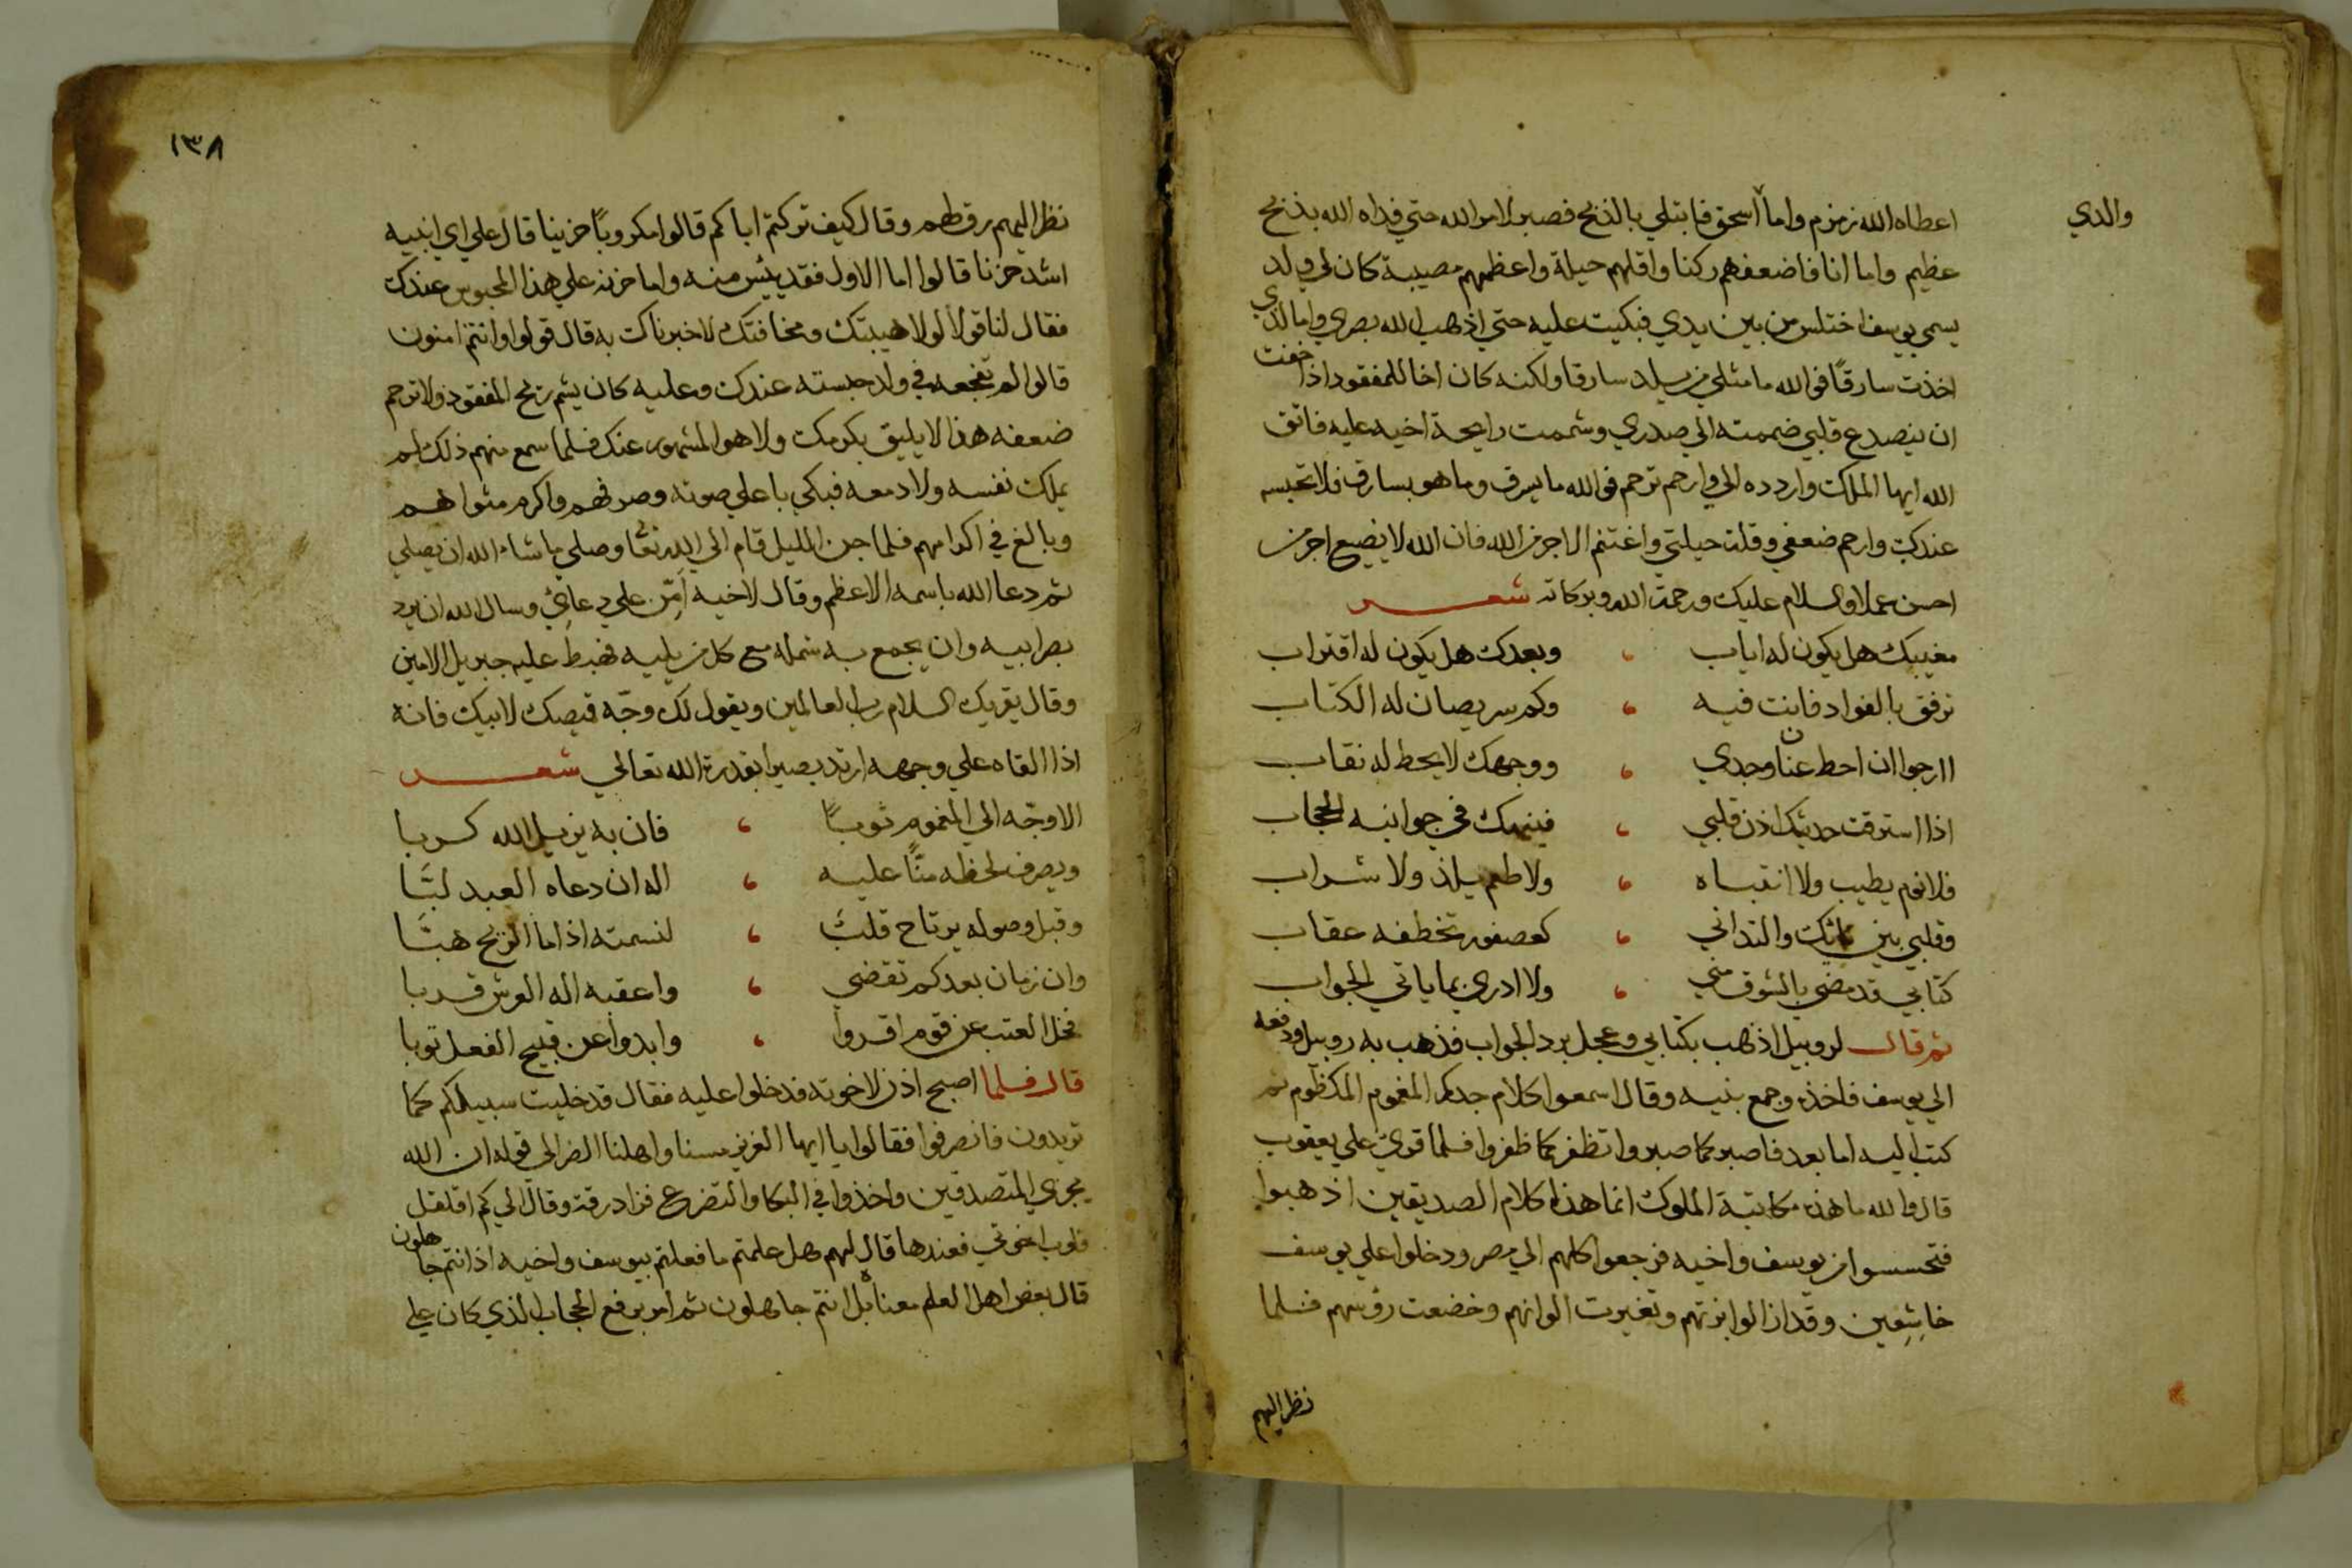 والدي
اعطاه الله زمزم واما اسحق فابتلي بالذبح فصبر لامر الله حتي فداه الله بذبح
عظيم واما انا فاضعفهم ركنا واقلهم حيلة واعظمهم مصيبة كان لي ولد
يسمي يوسف اختلس من بين يدي فبكيت عليه حتي اذهب الله بصري واما الذي
اخذت سارقًا فوالله ما مثلي من يلد سارقا ولكنه كان اخا للمفقود اذا خفت
ان ينصدع قلبي ضممته الي صدري وشممت رايحة اخيه عليه فاتق
الله ايها الملك واردده الي وارحم ترحم فوالله ما يسرق وما هو بسارق فلا تحبسه
عندك وارحم ضعفي وقلة حيلتي واغتنم الاجر من الله فان الله لا يضيع اجر من
احسن عملا والسلام عليك ورحمة الله وبركاته شعر
مغيبك هل يكون له اياب ، وبعدك هل يكون له اقتراب
ترفق بالفواد فانت فيه ، وكم سر يصان له الكتاب
اارجوا ان احط عنان وجدي ، ووجهك لا يحط له نقاب
اذا استرقت حديثك اذن قلبي ، فينهك في جوانبه الحجاب
فلا نوم يطيب ولا انتباه ، ولا طعم يلذ ولا شراب
وقلبي بين نايك والتداني ، كعصفور تخطفه عقاب
كتابي قد مضي بالشوق مني ، ولا ادري بما ياتي الجواب
ثم قال لروبيل اذهب بكتابي وعجل برد الجواب فذهب به روبيل ودفعه
الي يوسف فاخذه وجمع بنيه وقال اسمعوا كلام جدكم المغموم المكظوم ثم
كتب اليه اما بعد فاصبر كما صبروا تظفر كما ظفروا فلما قري علي يعقوب
قال والله ما هذه مكاتبة الملوك انما هذا كلام الصديقين اذهبوا
فتحسسوا من يوسف واخيه فرجعوا كلهم الي مصر ودخلوا علي يوسف
خاشِعِين وقد ازالوا بزتهم وتغيرت الوانهم وخضعت رؤسهم فلما
نظر اليهم
١٣٨
نظر اليهم رق لهم وقال كيف تركتم اباكم قالوا مكروبًا حزينا قال علي اي ابنيه
اشد حزنا قالوا اما الاول فقد يئس منه واما حزنه علي هذا المحبوس عندك
فقال لنا قولا لولا هيبتك ومخافتك لاخبرناك به قال قولوا وانتم امنون
قالوا لم تفجعه في ولد حبسته عندك وعليه كان يشم ريح المفقود ولا ترحم
ضعفه هذا لا يليق بكرمك ولا هو المشهور عنك فلما سمع منهم ذلك لم
يملك نفسه ولا دمعه فبكي باعلي صوته وصرفهم واكرم مثواهم
وبالغ في اكرامهم فلما جن الليل قام الي الله تعا وصلي ما شاء الله ان يصلي
ثم دعا الله باسمه الاعظم وقال لاخيه اَمِّن علي دعائي وسال الله ان يرد
بصر ابيه وان يجمع به شمله مع كل من يليه فهبط عليه جبريل الامين
وقال يقريك السلام رب العالمين ويقول لك وجّه قميصك لابيك فانه
اذا القاه علي وجهه ارتد بصيرا بقدرة الله تعالي شعر
الا وجّه الي المغموم ثوبًا ، فان به يزيل الله كربا
ويصرف لحظه منّا عليه ، اله ان دعاه العبد لبَّا
وقبل وصوله يرتاح قلبٌ ، لنسمته اذا ما الريح هبَّا
وان زمان بعدكم تقضي ، واعقبه اله العرش قربا
فخل العتب عن قوم اقروا ، وابدوا عن قبيح الفعل توبا
قال فلما اصبح اذن لاخوته فدخلوا عليه فقال قد خليت سبيلكم كما
تريدون فانصرفوا فقالوا يا ايها العزيز مسنا واهلنا الضر الي قوله ان الله
يجزي المتصدقين واخذوا في البكا والتضرع فزاد رقة وقال الي كم اقلقل
قلوب اخوتي فعندها قال لهم هل علمتم ما فعلتم بيوسف واخيه اذ انتم جاهلون
قال بعض اهل العلم معناه بل انتم جاهلون ثم امر برفع الحجاب الذي كان علي